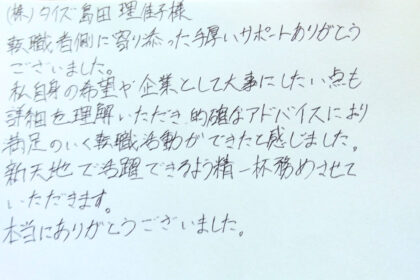 (株)タイズ 島田 理佳子様
転職者側に寄り添った手厚いサポートありがとう
ございました。
私自身の希望や企業として大事にしたい点も
詳細を理解いただき的確なアドバイスにより
満足のいく転職活動ができたと感じました。
新天地で活躍できるよう精一杯務めさせて
いただきます。
本当にありがとうございました。